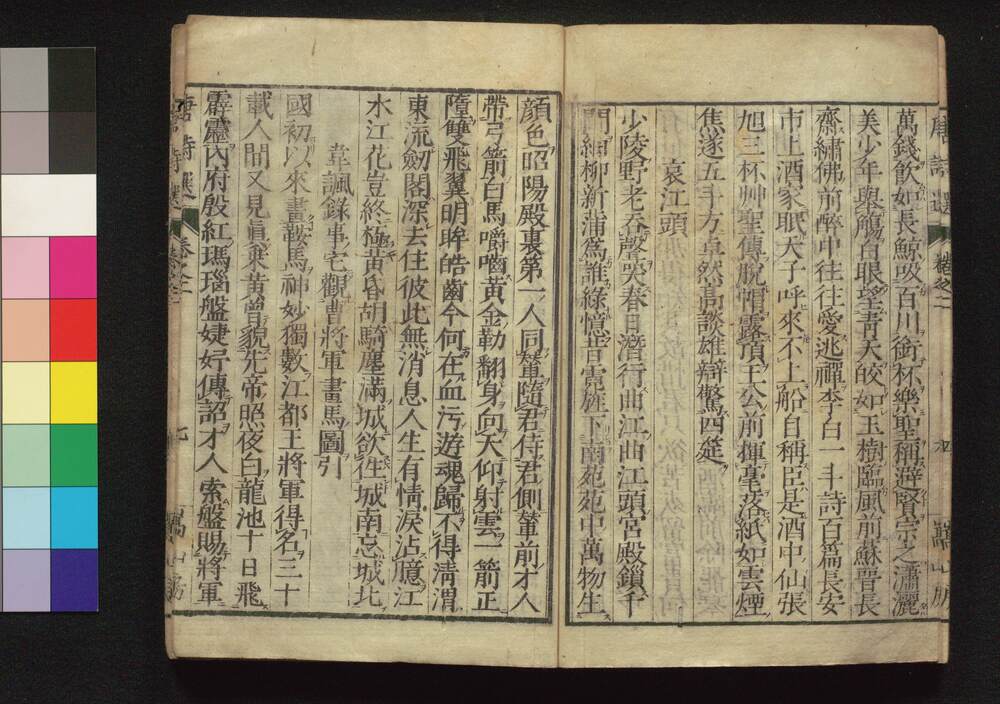 唐詩選 卷之二
萬錢飲如長鯨吸百川銜杯樂聖稱避賢宗之瀟灑
美少年舉觴白眼望青天皎如玉樹臨風前蘇晉長
齋繡佛前醉中往往愛逃禪李白一斗詩百篇長安
市上酒家眠天子呼來不上船自稱臣是酒中仙張
旭三杯艸聖傳脫帽露頂王公前揮毫落紙如雲煙
焦遂五斗方卓然高談雄辯驚四筵
哀江頭
少陵野老吞聲哭春日潛行曲江曲江頭宮殿鎖千
門細柳新蒲爲誰綠憶昔霓旌下南苑苑中萬物生
顏色昭陽殿裏第一人同輦隨君侍君側輦前才人
帶弓箭白馬嚼嚙黃金勒翻身向天仰射雲一箭正
墮雙飛翼明眸皓齒今何在血污遊魂歸不得清渭
東流劒閣深去住彼此無消息人生有情淚沾臆江
水江花豈終極黃昏胡騎塵滿城欲往城南忘城北
韋諷錄事宅觀曹將軍畫馬圖引
國初以來畫鞍馬神妙獨數江都王將軍得名三十
載人間又見眞乘黃曾貌先帝照夜白龍池十日飛
霹靂內府殷紅瑪瑙盤婕妤傳詔才人索盤賜將軍
唐詩選 卷之二 七